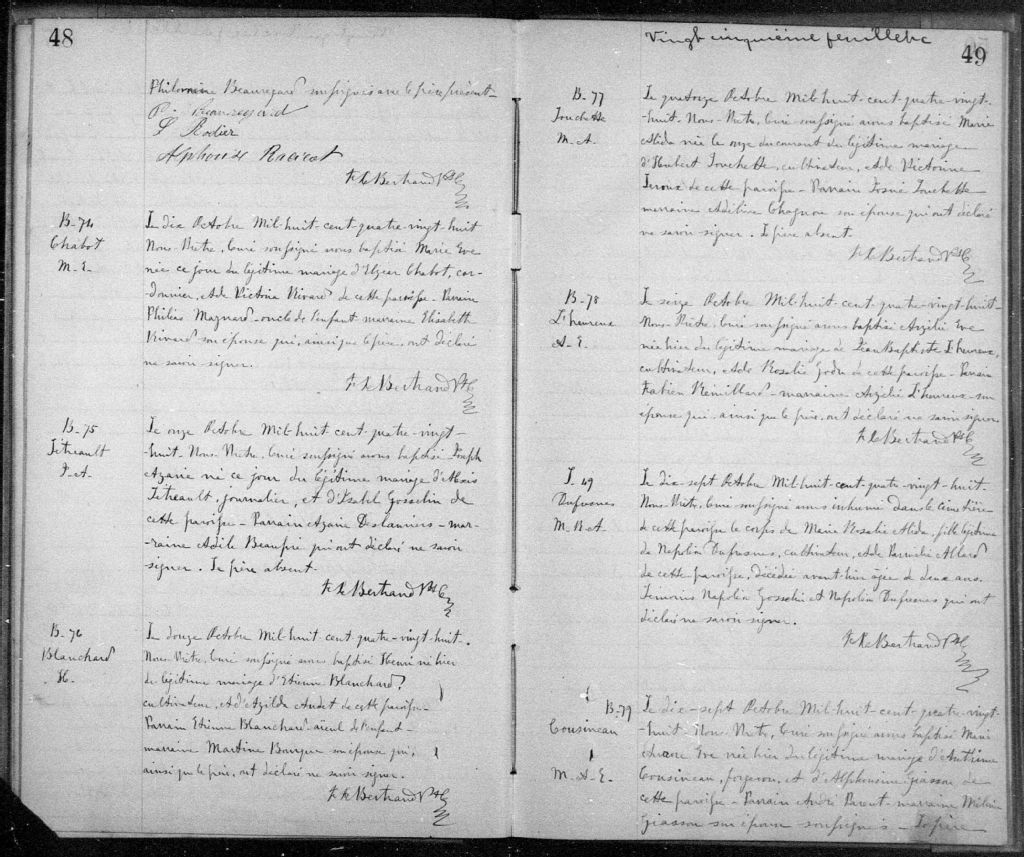 48
Philomène Beauregard soussignés avec le père présent
P. Beauregard
L Rodier
Alphonse Racicot
F. X. Bertrand Ptre C
B-74
Chabot
M. E.
Le dix Octobre Mil-huit-cent-quatre-vingt-huit
Nous-Prêtre, Curé soussigné avons baptisé Marie Eve
née ce jour du légitime mariage d'Elzear Chabot, cor-
donnier, et de Victoria Rivard de cette paroisse - Parrain
Philias Maynard - oncle de l'enfant marraine Elisabeth
Rivard son épouse qui, ainsi que le père, ont déclaré
ne savoir signer.
F. X. Bertrand Ptre C
B-75
Tétreault
J. A.
Le onze Octobre Mil-huit-cent-quatre-vingt-
huit. Nous-Prêtre, Curé soussigné avons baptisé Joseph
Azarie né ce jour du légitime mariage d'
Tétreault, journalier, et d'Isabel Gosselin de
cette paroisse - Parrain Azarie Deslauriers - mar-
raine Adèle Beaupré qui ont déclaré ne savoir
signer. Le père absent.
F. X. Bertrand Ptre C
B-76
Blanchard
H.
Le douze Octobre Mil-huit-cent-quatre-vingt-huit.
Nous-Prêtre, Curé soussigné avons baptisé Henri né hier
du légitime mariage d'Etienne Blanchard,
cultivateur, et d'Azilda Audet de cette paroisse -
Parrain Etienne Blanchard aïeul de l'enfant -
marraine Martine son épouse qui,
ainsi que le père, ont déclaré ne savoir signer.
F. X. Bertrand Ptre C
Vingt cinquième feuillet
49
B-77
Touchette
M. A.
Le quatorze Octobre Mil-huit-cent-quatre-vingt-
huit. Nous-Prêtre, Curé soussigné avons baptisé Marie
Alida née le onze du courant du légitime mariage
d'Hubert Touchette, cultivateur, et de Victorine
de cette paroisse - Parrain Touchette
marraine Chagnon son épouse qui ont déclaré
ne savoir signer. Le père absent.
F. X. Bertrand Ptre C
B-78
L'heureux
A. E.
Le seize Octobre Mil-huit-cent-quatre-vingt-huit-
Nous-Prêtre, Curé soussigné avons baptisé Azélie Eve
née hier du légitime mariage de Jean Baptiste L'heureux,
cultivateur, et de Rosalie Godu de cette paroisse - Parrain
Fabien Rémillard - marraine Azélie L'heureux son
épouse qui, ainsi que le père, ont déclaré ne savoir signer
F. X. Bertrand Ptre C
S. 49
Dufresnes
M. R. A.
Le dix-sept Octobre Mil-huit-cent-quatre-vingt-huit.
Nous-Prêtre, Curé soussigné avons inhumé dans le cimetière
de cette paroisse le corps de Marie Rosalie Alida, fille légitime
de Napoléon Dufresnes, cultivateur, et de Allard
de cette paroisse, décédée avant-hier âgée de deux ans.
Témoins Napoléon Gosselin et Napoléon Dufresnes qui ont
déclaré ne savoir signer.
F. X. Bertrand Ptre C
B-79
Cousineau
M. A. E.
Le dix-sept Octobre Mil-huit-cent-quatre-vingt-
-huit. Nous-Prêtre, Curé soussigné avons baptisé Marie
Eve née hier du légitime mariage d'Anthime
Cousineau, forgeron, et d'Alphonsine Giasson de
cette paroisse - Parrain André Parent - marraine
Giasson son épouse soussignés - Le père